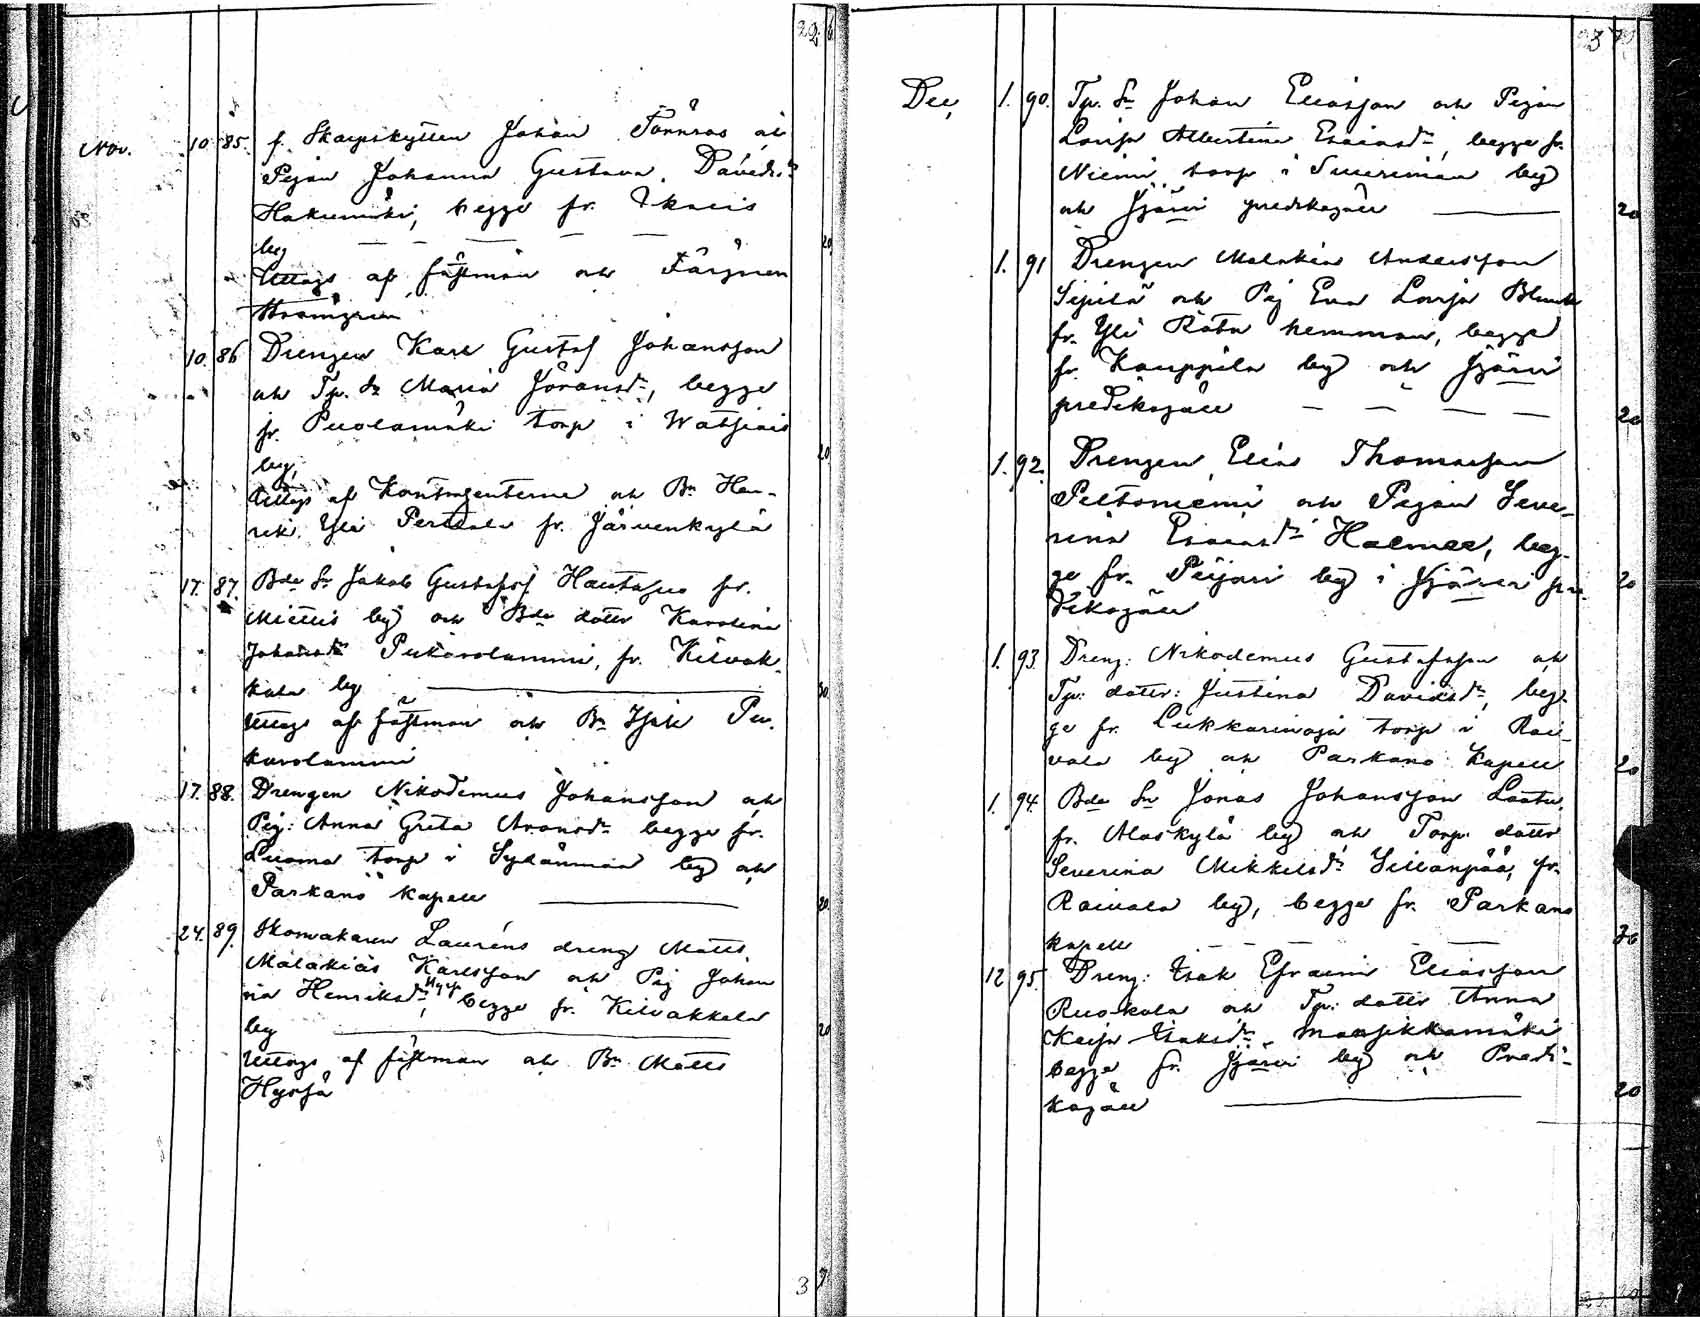 22
Nov. 10. 85. f. Skarpskytten Johan Törnroos och
Pigan Johanna Gustava Davidsdr
Hakumäki, begge fr. Ikalis
by 20
Uttags af fästman och Färgaren
Strömgren
10. 86 Drengen Karl Gustaf Johansson
och Tp. dr Maria Jöransdr, begge
fr. Puolamäki torp i Watsiais
by, 20
Uttags af Kontrahenterne och Bn Hen-
rik Yli Perttula fr. Järvenkylä
17. 87. Bde Sn Jakob Gustafss. Hautajus fr.
Miettis by och Bde dottr Karolina
Johansdr fr. Kilvak-
kala by 30
Uttags af fästman och Bn Isak
17. 88. Drengen Nikodemus Johansson och
Pig: Anna Greta Aronsdr begge fr.
Luoma torp i Sydänmaa by och
Parkano kapell 20
24. 89. Skomakaren Lauréns dreng Matts
Malakias Karlsson och Pig Johan
na Henriksdr, begge fr. Kilvakkala
by 20
Uttags af fästman och Bn Matts
Hyysä
3
23
Dec, 1. 90. Tp. Sn Johan Eliasson och Pigan
Lovisa Albertina Esaiasdr, begge fr.
Niemi torp i Suurimaa by
och Jjärvi predikogäll 20
1. 91 Drengen Malakias Andersson
Sipilä och Pig Eva Lovisa
fr. Yli Röttu hemman, begge
fr. Kauppila by och Jjärvi
predikogäll 20
1. 92. Drengen Elias Thomasson
Peltoniemi och Pigan Seve-
rina Esaiasdr Halmee, beg-
ge fr. by i Jjärvi pre-
dikogäll 20
1. 93 Dreng: Nikodemus Gustafsson och
Tp: dottr: Justina Davidsdr, beg-
ge fr. Lukkarinoja torp i Rai-
vala by och Parkano Kapell 20
1. 94. Bde Sn Jonas Johansson Laatu
fr. Alaskylä by och Torp. dottr
Severina Mikkelsdr Sillanpää, fr.
Raivala by, begge fr. Parkano
kapell 30
12 95. Dreng: Isak Efraim Eliasson
Ruokola och Tp: dottr Anna
Kaisa Isaksdr Mansikkamäki
begge fr. Jjärvi by och Predi-
kogäll 20